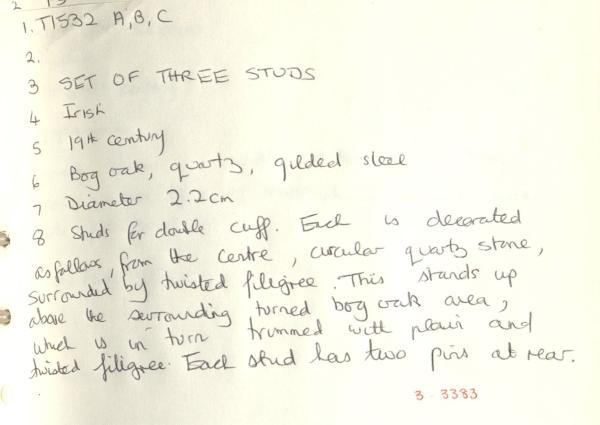 1. T1532 A, B, C
2.
3 SET OF THREE STUDS
4 Irish
5 19th century
6 Bog oak, quartz, gilded steel
7 Diameter 2.2cm
8 Studs for double cuff. Each is decorated
as follows, from the centre, circular quartz stone,
surrounded by twisted filigree. This stands up
above the surrounding turned bog oak area,
which is in turn trimmed with plain and
twisted filigree. Each stud has two pins at rear.
3 - 3383